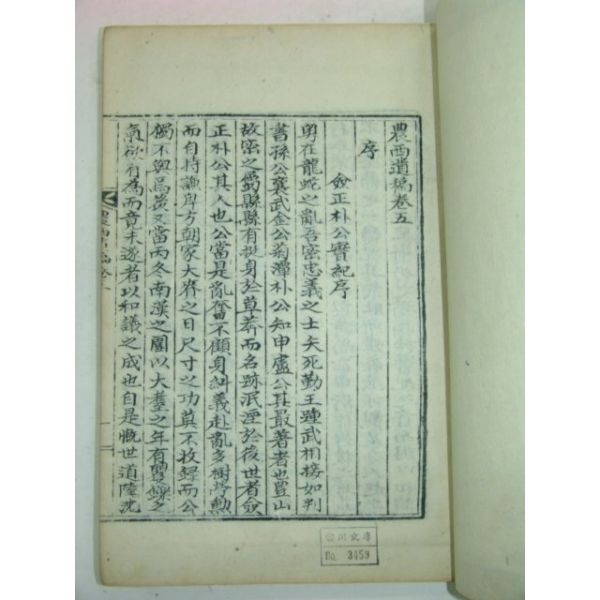 農西遺稿卷五
序
僉正朴公實紀序
粤在龍蛇之亂吾密忠義之士矢死勤王踵武相接如判
書孫公襄武金公菊潭朴公知申盧公其最著者也豊山
故密之屬縣縣有挺身於草莽而名跡泯湮於後世者僉
正朴公其人也公當是亂奮不顧身糾義赴亂多樹勞勳
而自持謙卑方朝家大賚之日尺寸之功莫不收錄而公
獨不與焉後又當丙冬南漢之圍以大耋之年有矍鑠之
氣欲有爲而竟未遂者以和議之成也自是慨世道陸沈
農西遺稿卷五
一
文庫
No. 3459